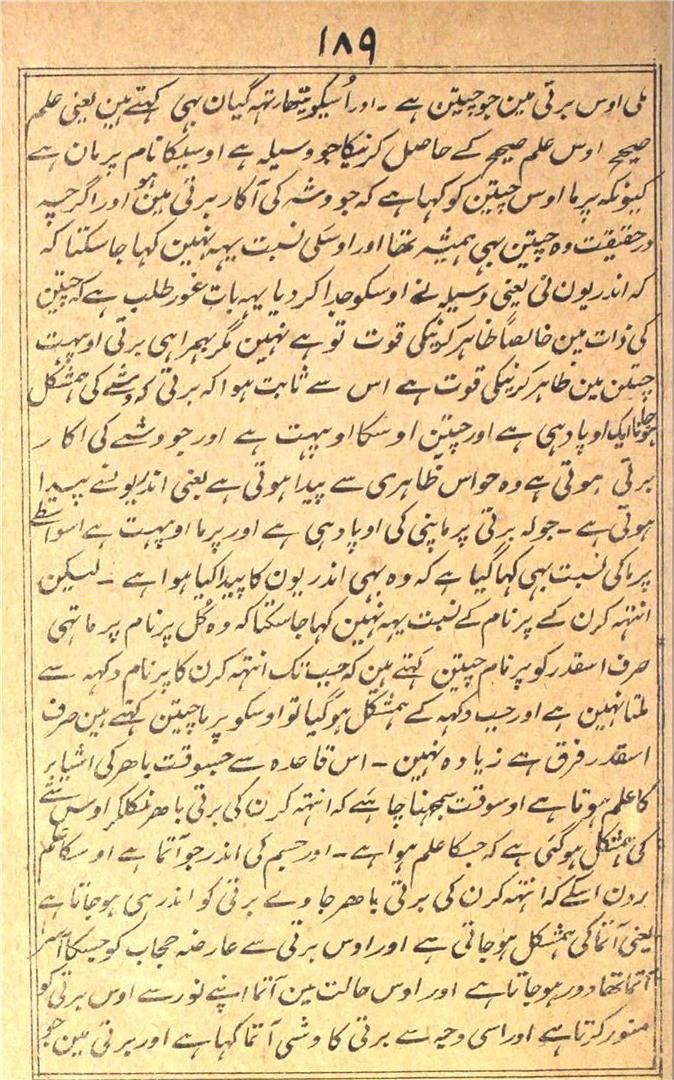 ۱۸۹
ملی اوس برتی مین جو چیتن ہے ۔ اور اُسیکو یتھارتہہ گیان بہی کہتے ہین یعنی علم
صحیح اوس علم صحیح کے حاصل کرنیکا جو وسیلہ ہے اوسیکا نام پرمان ہے
کیونکہ پرما اوس چیتن کو کہا ہے کہ جو وشہ کی آکار برتی مین ہو اور اگرچہ
درحقیقت وہ چیتن بہی ہمیشہ تھا اور اوسکی نسبت یہہ نہین کہا جا سکتا کہ
کہ اندریون نی یعنی وسیلہ نے اوسکو جدا کر دیا یہہ بات غور طلب ہے کہ چیتن
کی ذات مین خالصاً ظاہر کرنیکی قوت تو ہے نہین مگر ہمراہی برتی اوپہت
چیتن مین ظاہر کرنیکی قوت ہے اس سے ثابت ہوا کہ برتی کہ وشے کی ہمشکل
ہو جانا ایک اوپادہی ہے اور چیتن اوسکا اوپہت ہے اور جو وشے کی اکار
برتی ہوتی ہے وہ حواس ظاہری سے پیدا ہوتی ہے یعنی اندریونسے پیدا
ہوتی ہے ۔ جو کہ برتی پرما پنی کی اوپادہی ہے اور پرما اوپہت ہے اسواسطے
پرما کی نسبت بہی کہا گیا ہے کہ وہ بہی اندریون کا پیدا کیا ہوا ہے ۔ لیکن
انتہہ کرن کے پرنام کے نسبت یہہ نہین کہا جا سکتا کہ وہ کُل پرنام پرما تہی
صرف اسقدر کو پرنام چیتن کہتے ہین کہ جب تک انتہہ کرن کا پرنام دکہہ سے
ملتا نہین ہے اور جب دکہہ کے ہمشکل ہو گیا تو اوسکو پرما چیتن کہتے ہین صرف
اسقدر فرق ہے زیادہ نہین ۔ اس قاعدہ سے جسوقت باھر کی اشیا پر
کا علم ہوتا ہے اوسوقت سمجہنا چاہئے کہ انتہہ کرن کی برتی باھر نکلکر اوس شے
کی ہمشکل ہو گئی ہے کہ جسکا علم ہوا ہے ۔ اور جسم کی اندر جو آتما ہے اوسکا علم
بدون اسکے کہ انتہہ کرن کی برتی باھر جاوے برتی کو اندر ہی ہو جاتا ہے
یعنی آتما کی ہمشکل ہو جاتی ہے اور اوس برتی سے عارضہ حجاب کو جسکا آسر
آتما تھا دور ہو جاتا ہے اور اوس حالت مین آتما اپنے نور سے اوس برتی کو
منور کرتا ہے اور اسی وجہ سے برتی کا وشی آتما کہا ہے اور برتی مین جو